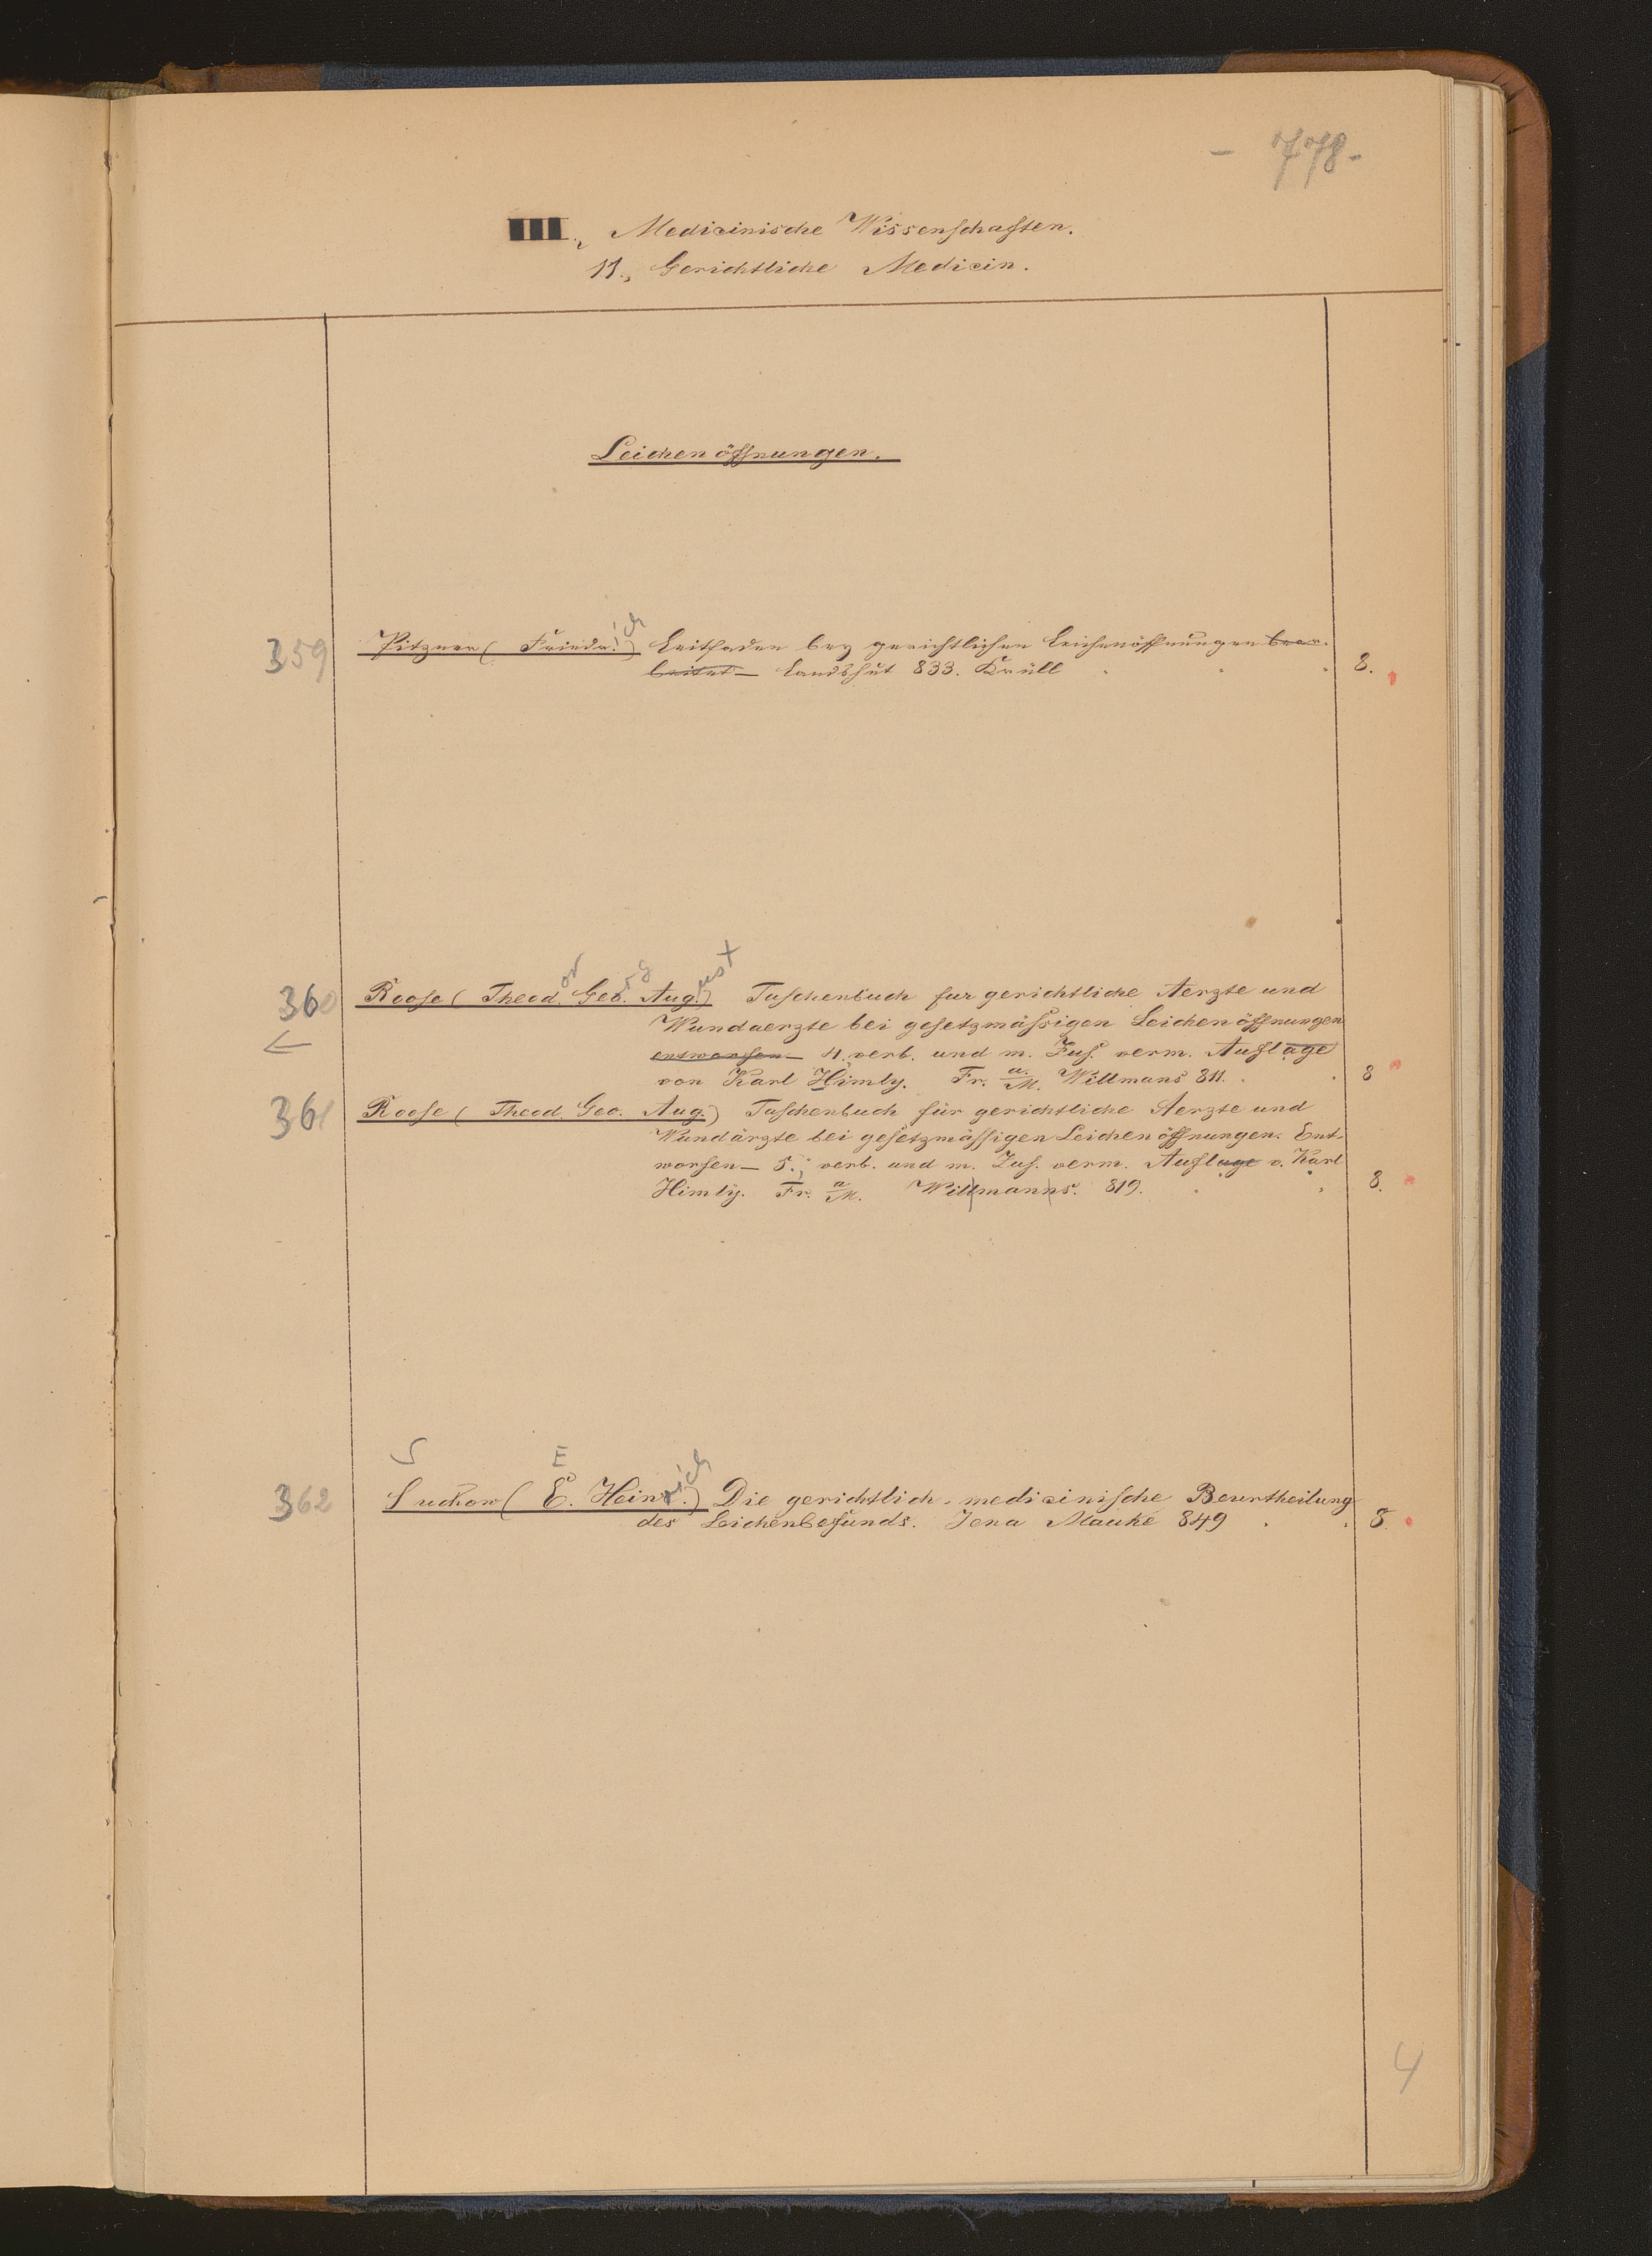 - 778 -
III., Medicinische Wissenschaften.
11., Gerichtliche Medicin.
Leichenöffnungen.
359 Pitzner (Friedr.ich) Leitfaden bey gerichtlichen Leichenöffnungen bear-
beitet — Landshut 833. Krüll 8.
360 Roose (Theodor Georg. August) Taschenbuch fur gerichtliche Aerzte und
← Wundaerzte bei gesetzmäßigen Leichenöffnungen
entworfen — 4. verb. und m. Zus. verm. Auflage
von Karl Himly. Fr. a. M. Willmans 811. 8
361 Roose (Theod. Geo. Aug.) Taschenbuch für gerichtliche Aerzte und
Wundärzte bei gesetzmässigen Leichenöffnungen. Ent-
worfen — 5., verb. und m. Zus. verm. Auflage v. Karl
Himly. Fr. a M. Willmanns. 819. 8.
S E
362 Suckow (E. Heinr.ich) Die gerichtlich-medicinische Beurtheilung
des Leichenbefunds. Jena Mauke 849 8.
4